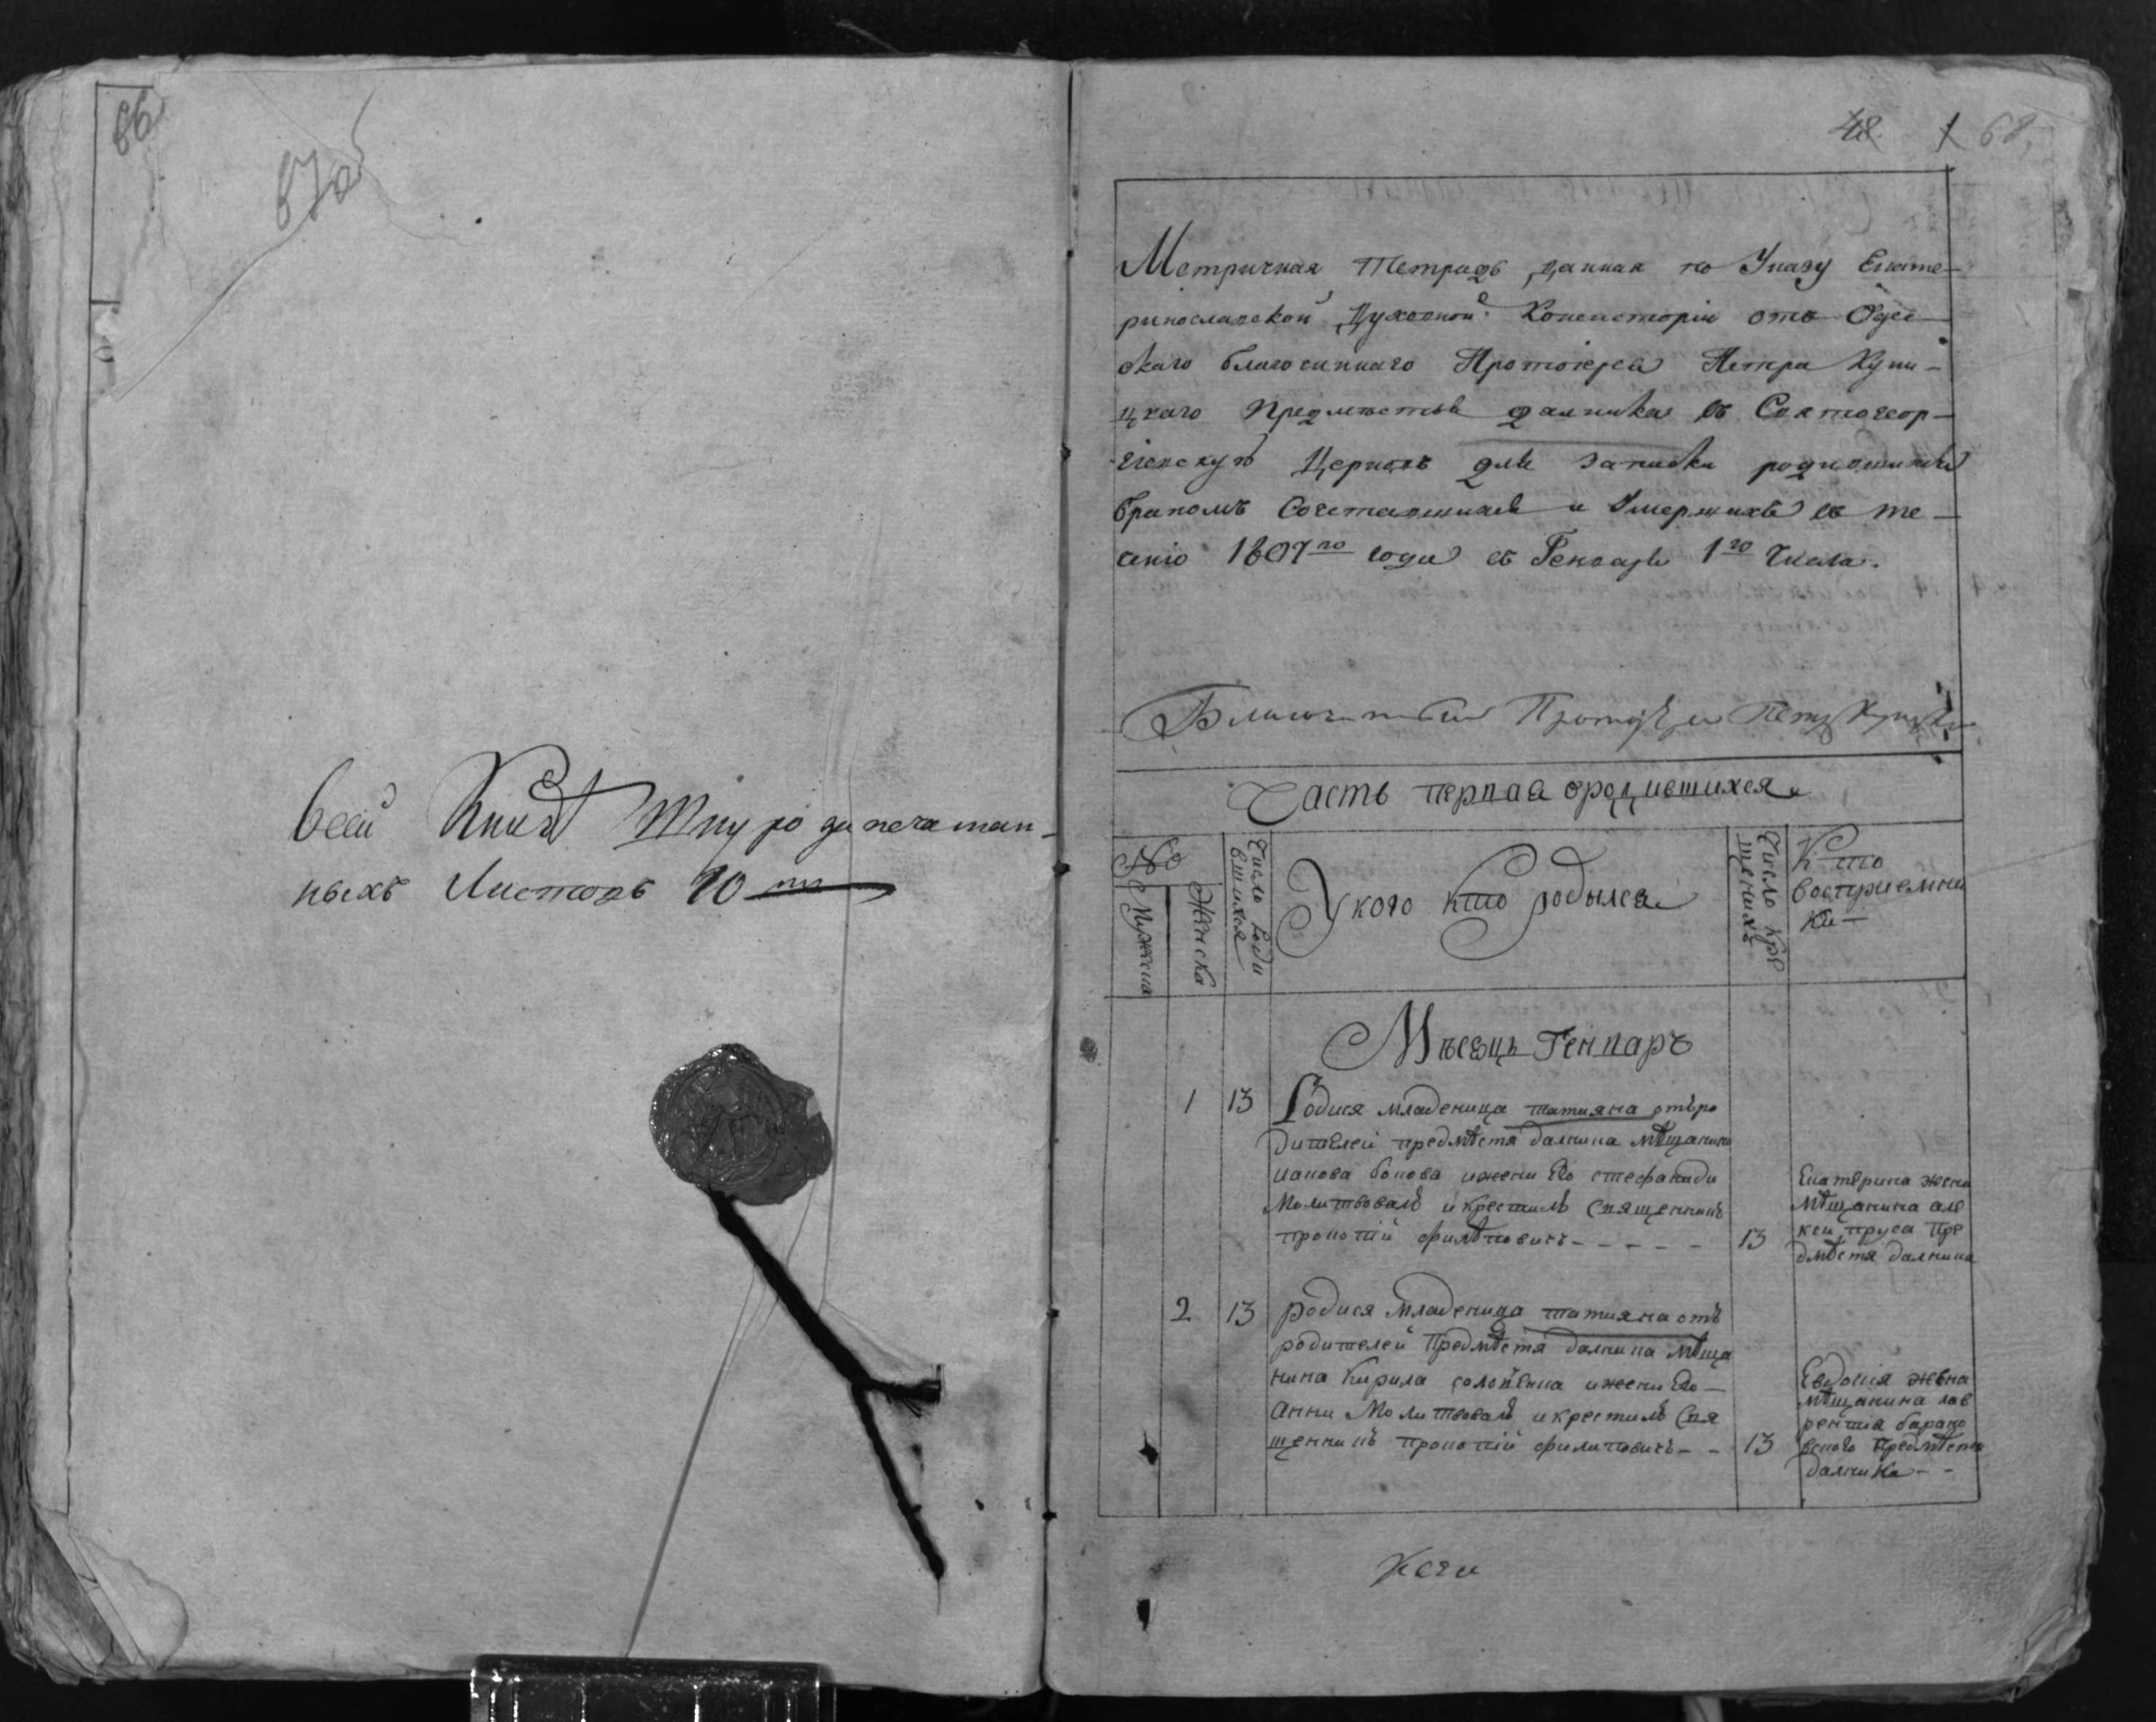 66
67об
всей Книгѣ Шнурозапечатан-
ныхъ Листовъ 10ть
48 1 68.
Метричная Тетрадь данная по Указу Екате-
ринославской Духовной Консисторіи отъ Одес-
скаго благочиннаго Протоіерея Петра Куни-
цкаго предмѣстья далника въ Святогеор-
гіевскую Церковь для записки родившихся
бракомъ Сочетавшихся и Умершихъ въ те-
ченіе 1807го года съ Генваря 1го Числа.
Благочинный Протоіерей Петръ Куницкій
Часть первая ородившихся
№
Мужеска
Женска
Число роди
вшихся
Укого кто родылся
Число кре
щенихъ
Кто
восприемни
ки
Мѣсяцъ Генваръ
1 13 Родися младеница татияна отъро
дителей предмѣстя далника мѣщанина
иакова бокова ижени Его стефаниди
Молитвовалъ икрестилъ Священникъ
прокопій филѣповичъ - - - - - 13
Екатерина жена
мѣщанина але
кси пруса пре
дмѣстя далника
2 13 родися младеница татияна отъ
родителей Предмѣстя далника мѣща
нина Кирила ижени Его
Анни Молитвовалъ икрестилъ Свя
щенникъ прокопій филиповичъ - - 13
Евдокия жена
мѣщанина лав
рентия барано
вского предмѣстя
далника - -